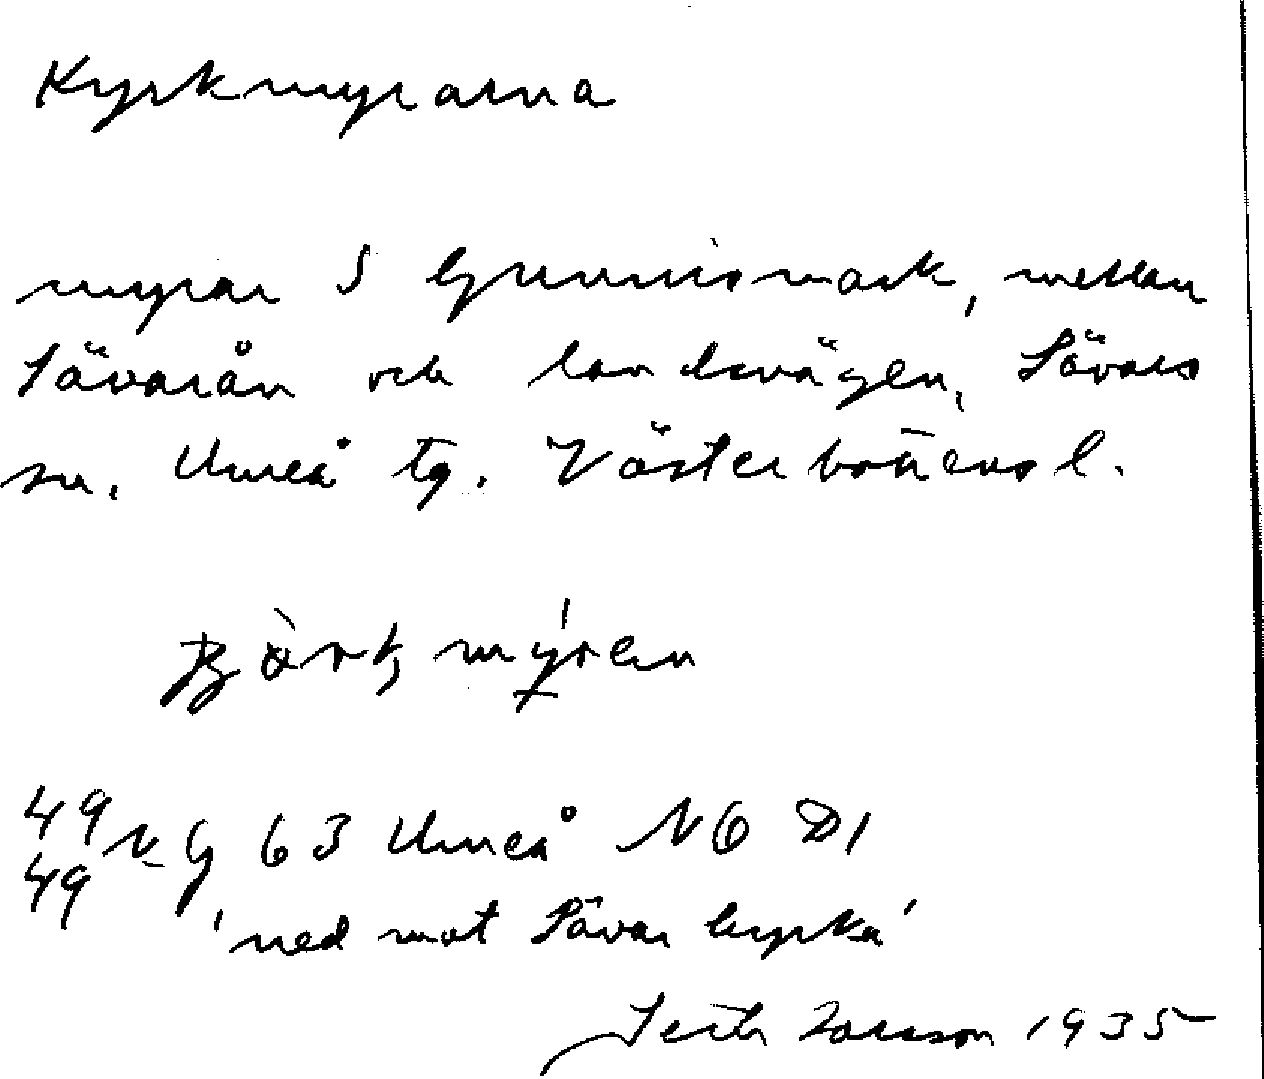 Kyrkmyrarna
myrar S Gunnismark, mellan
Sävarån och landsvägen, Sävars
sn. Umeå tg. Västerbottens l.
myren
49 49 G 63 Umeå N6 D1
'ned mot Sävar kyrka'
Seth Larsson 1935